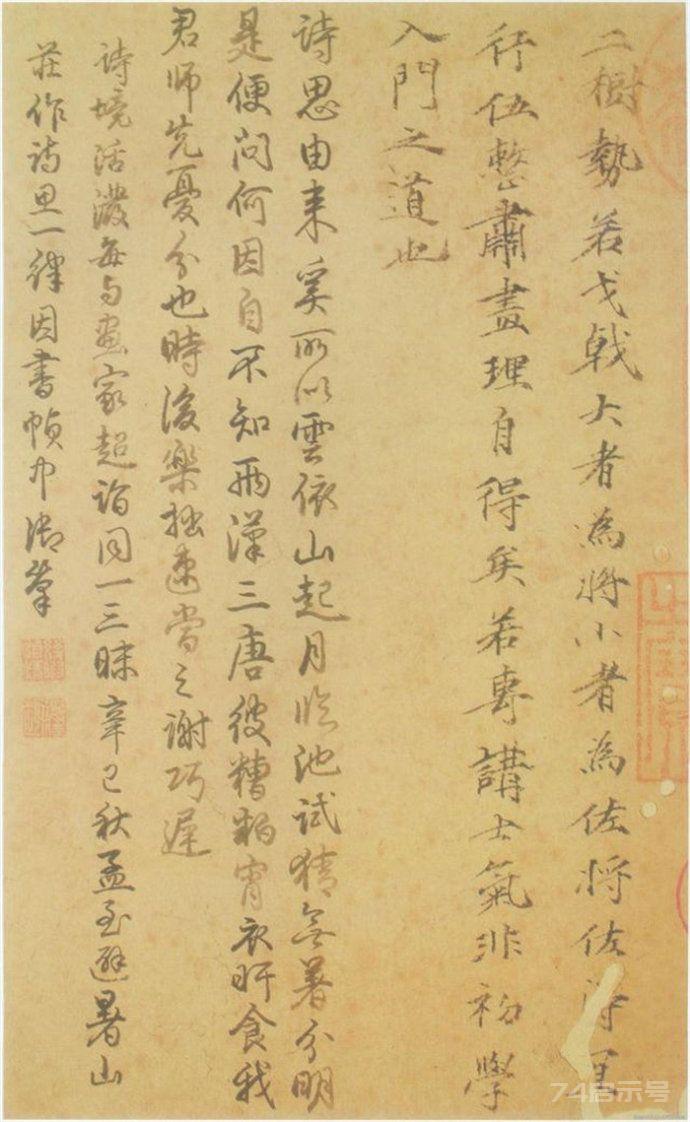 二樹勢若戈戟大者為將小者為佐將佐得
行伍整肅畫理自得矣若專講士氣非初學
入門之道也
詩思由来奚所以雲依山起月臨池試猜無著分明
是便問何因自不知兩漢三唐彼糟粕宵衣旰食我
君師先憂分也時後樂拙速當之謝巧遲
詩境活潑每与畫家超詣同一三昧辛巳秋孟至避暑山
莊作詩思一律因書幀中御筆
74启示号